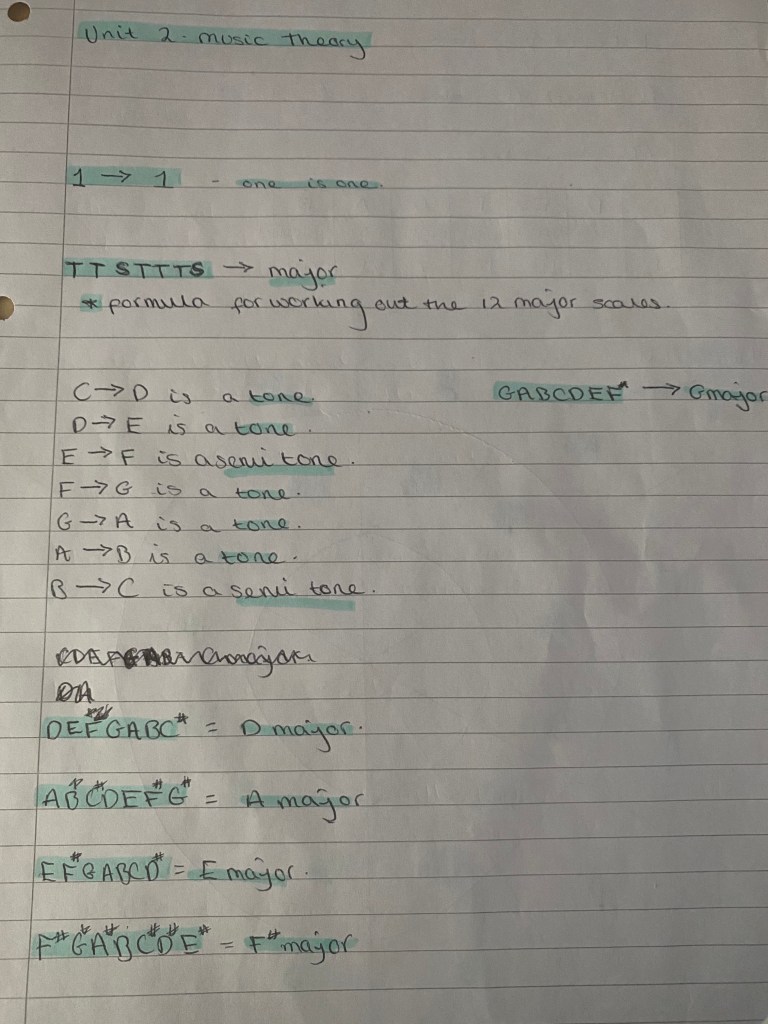 Unit 2 - music theory
1 → 1 - one is one.
TTSTTTS → major
* formula for working out the 12 major scales.
C → D is a tone.
GABCDEF# → G major
D → E is a tone.
E → F is a semi tone.
F → G is a tone.
G → A is a tone.
A → B is a tone.
B → C is a semi tone.
DEF#GABC# = D major.
ABC#DEF#G# = A major
EF#GABCD# = E major.
F#G#A#BC#D#E# = F# major